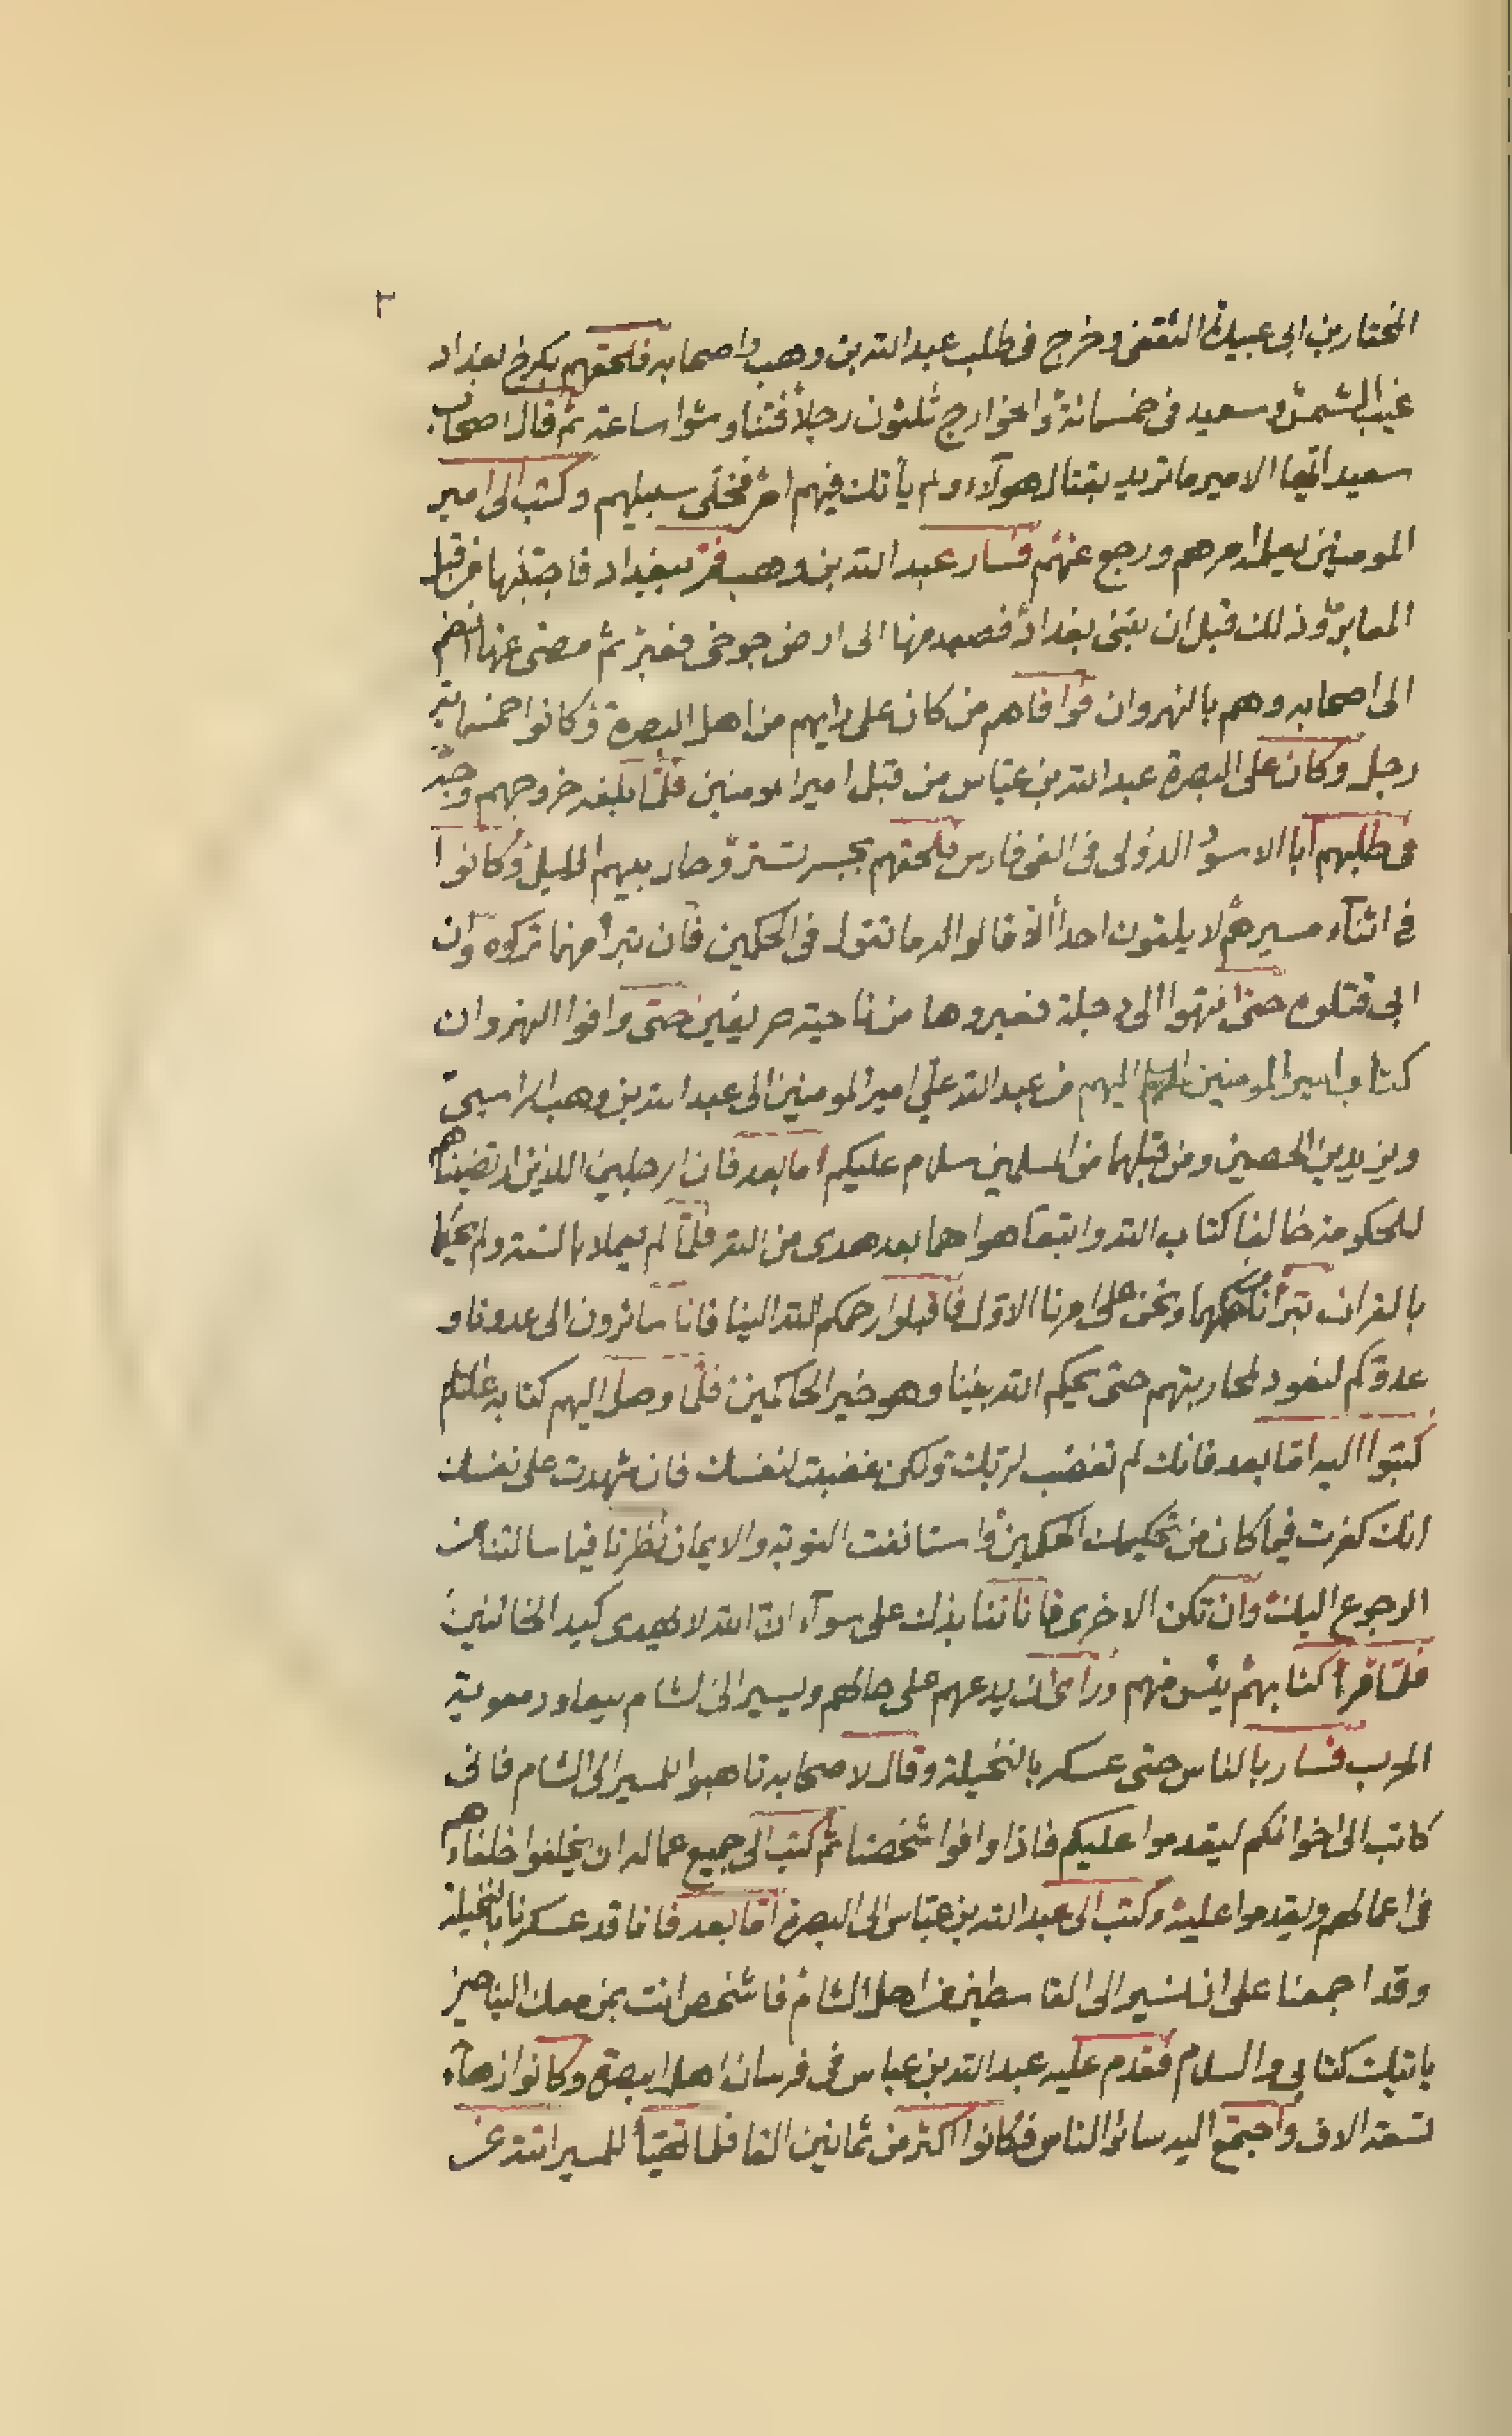 ٣
المختار بن ابى عبيدة الثقفى وخرج فى طلب عبد الله بن وهب واصحابه فلحقهم بكرخ بغداد
غيب الشمس وسعيد فى خمسمائة والخوارج ثلثون رجلاً فتناوشوا ساعة ثم قال اصحاب
سعيد ايها الامير ما تريد بقتال هولآء ولم يأتك فيهم امر فخلّى سبيلهم وكتب الى امير
المومنين يعلمه امرهم ورجع عنهم فسار عبد الله بن وهب فمرّ ببغداد فاجتنبها من قبل
المعابر وذلك قبل ان تبنى بغداد فصعد منها الى ارض جوخى فعبر ثم مضى عنها
الى اصحابه وهم بالنهروان فوافاهم من كان على رايهم من اهل البصرة وكانوا خمسمائة
رجل وكان على البصرة عبد الله بن عبّاس من قبل امير المومنين فلمّا بلغه خروجهم وجّه
فى طلبهم ابا الاسود الدؤلى فى الفى فارس فلحقهم بجسر تستر وحار بينهم الليل وكانوا
فى اثنآء مسيرهم لا يلقون احداً الّا قالوا له ما تقول فى الحكمين فان تبرأ منهما تركوه وان
ابى قتلوه حتى انتهوا الى دجلة فعبروها من ناحية صريفين حتى وافوا النهروان
كتاب امير المومنين اليهم من عبد الله على امير المومنين الى عبد الله بن وهب الراسبى
ويزيد بن الحصين ومن قبلهما من المسلمين سلام عليكم اما بعد فان الرجلين اللذين ارتضيناهم
للحكومة خالفا كتاب الله واتبعا هواهما بعد هدى من الله فلمّا لم يعملا بالسنة ولم يحكما
بالقران تبرأنا من حكمهما ونحن على امرنا الاوّل فاقبلوا رحمكم الله الينا فانا سائرون الى عدونا و
عدوّكم لنعود لمحاربتهم حتى يحكم الله بيننا وهو خير الحاكمين فلمّا وصل اليهم كتابه
كتبوا اليه امّا بعد فانك لم تغضب لربّك ولكن غضبت لنفسك فان شهدت على نفسك
انك كفرت فيما كان من تحكيمك الحكمين واستانفت التوبة والايمان نظرنا فيما سالتنا من
الرجوع اليك وان تكن الاخرى فانا ننابذك على سوآء ان الله لا يهدى كيد الخائنين
فلمّا قرا كتابهم يئس منهم وراى ان يدعهم على حالهم ويسير الى الشام ليعاود معوية
الحرب فسار بالناس حتى عسكر بالنخيلة وقال لاصحابه تاهبوا للمسير الى الشام فانى
كاتب الى اخوانكم ليقدموا عليكم فاذا وافوا شخصنا ثم كتب الى جميع عماله ان يخلفوا خلفاءهم
فى اعمالهم ويقدموا عليه وكتب الى عبد الله بن عبّاس الى البصرة امّا بعد فانا قد عسكرنا بالنخيلة
وقد اجمعنا على ان نسير الى القاسطين من اهل الشام فاشخص انت بمن معك الينا حين
ياتيك كتابى والسلام فقدم عليه عبد الله بن عباس فى فرسان اهل البصرة وكانوا زهآء
تسعة الاف واجتمع اليه سائر الناس فكانوا اكثر من ثمانين الفا فلما تهيّأ للمسير اتته عن